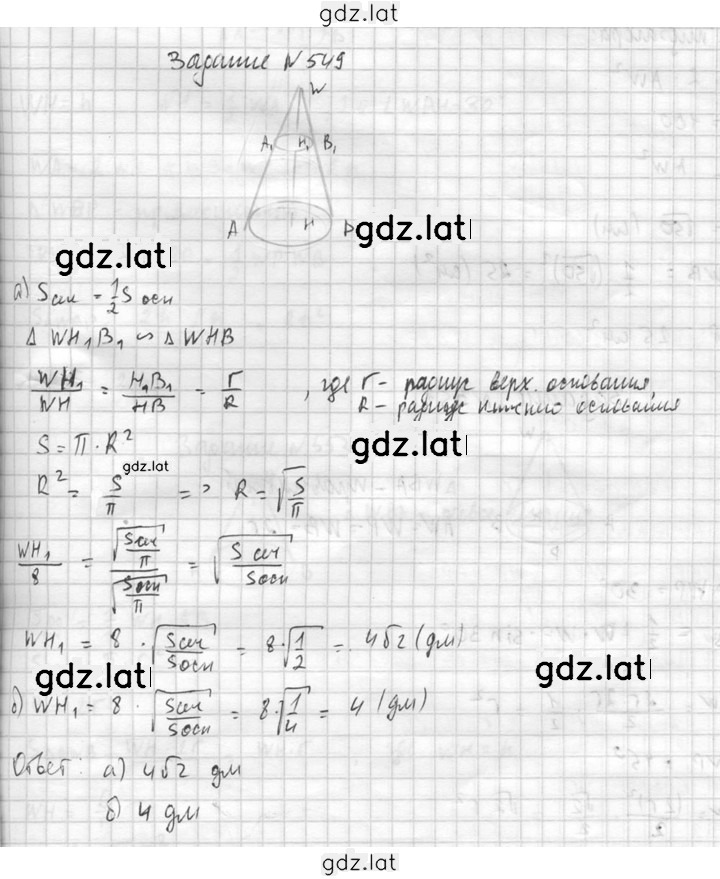 gdz.lat
Задание N 549
W
A₁ H₁ B₁
A H B
gdz.lat
gdz.lat
а) Sсеч = 1/2 Sосн
Δ WH₁B₁ ∽ Δ WHB
WH₁/WH = H₁B₁/HB = r/R , где r - радиус верх. основания
R - радиус нижнего основания
gdz.lat
S = π · R²
gdz.lat
R² = S/π => R = √(S/π)
WH₁/8 = √(Sсеч/π)/√(Sосн/π) = √(Sсеч/Sосн)
WH₁ = 8 · √(Sсеч/Sосн) = 8·√(1/2) = 4√2 (дм)
gdz.lat
gdz.lat
б) WH₁ = 8 · √(Sсеч/Sосн) = 8·√(1/4) = 4 (дм)
Ответ: а) 4√2 дм
б) 4 дм
gdz.lat